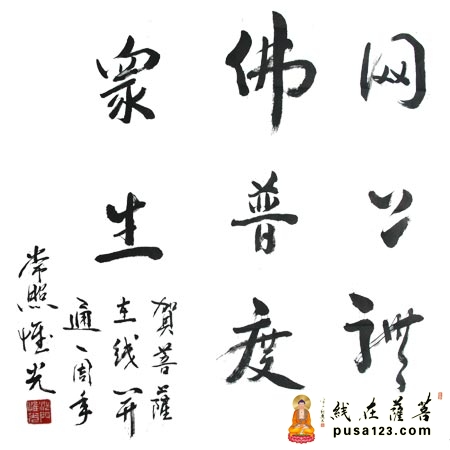 网上禮
佛普度
眾生
賀菩薩
在线开
通一周年
常照惟光
菩薩在线
pusa123.com